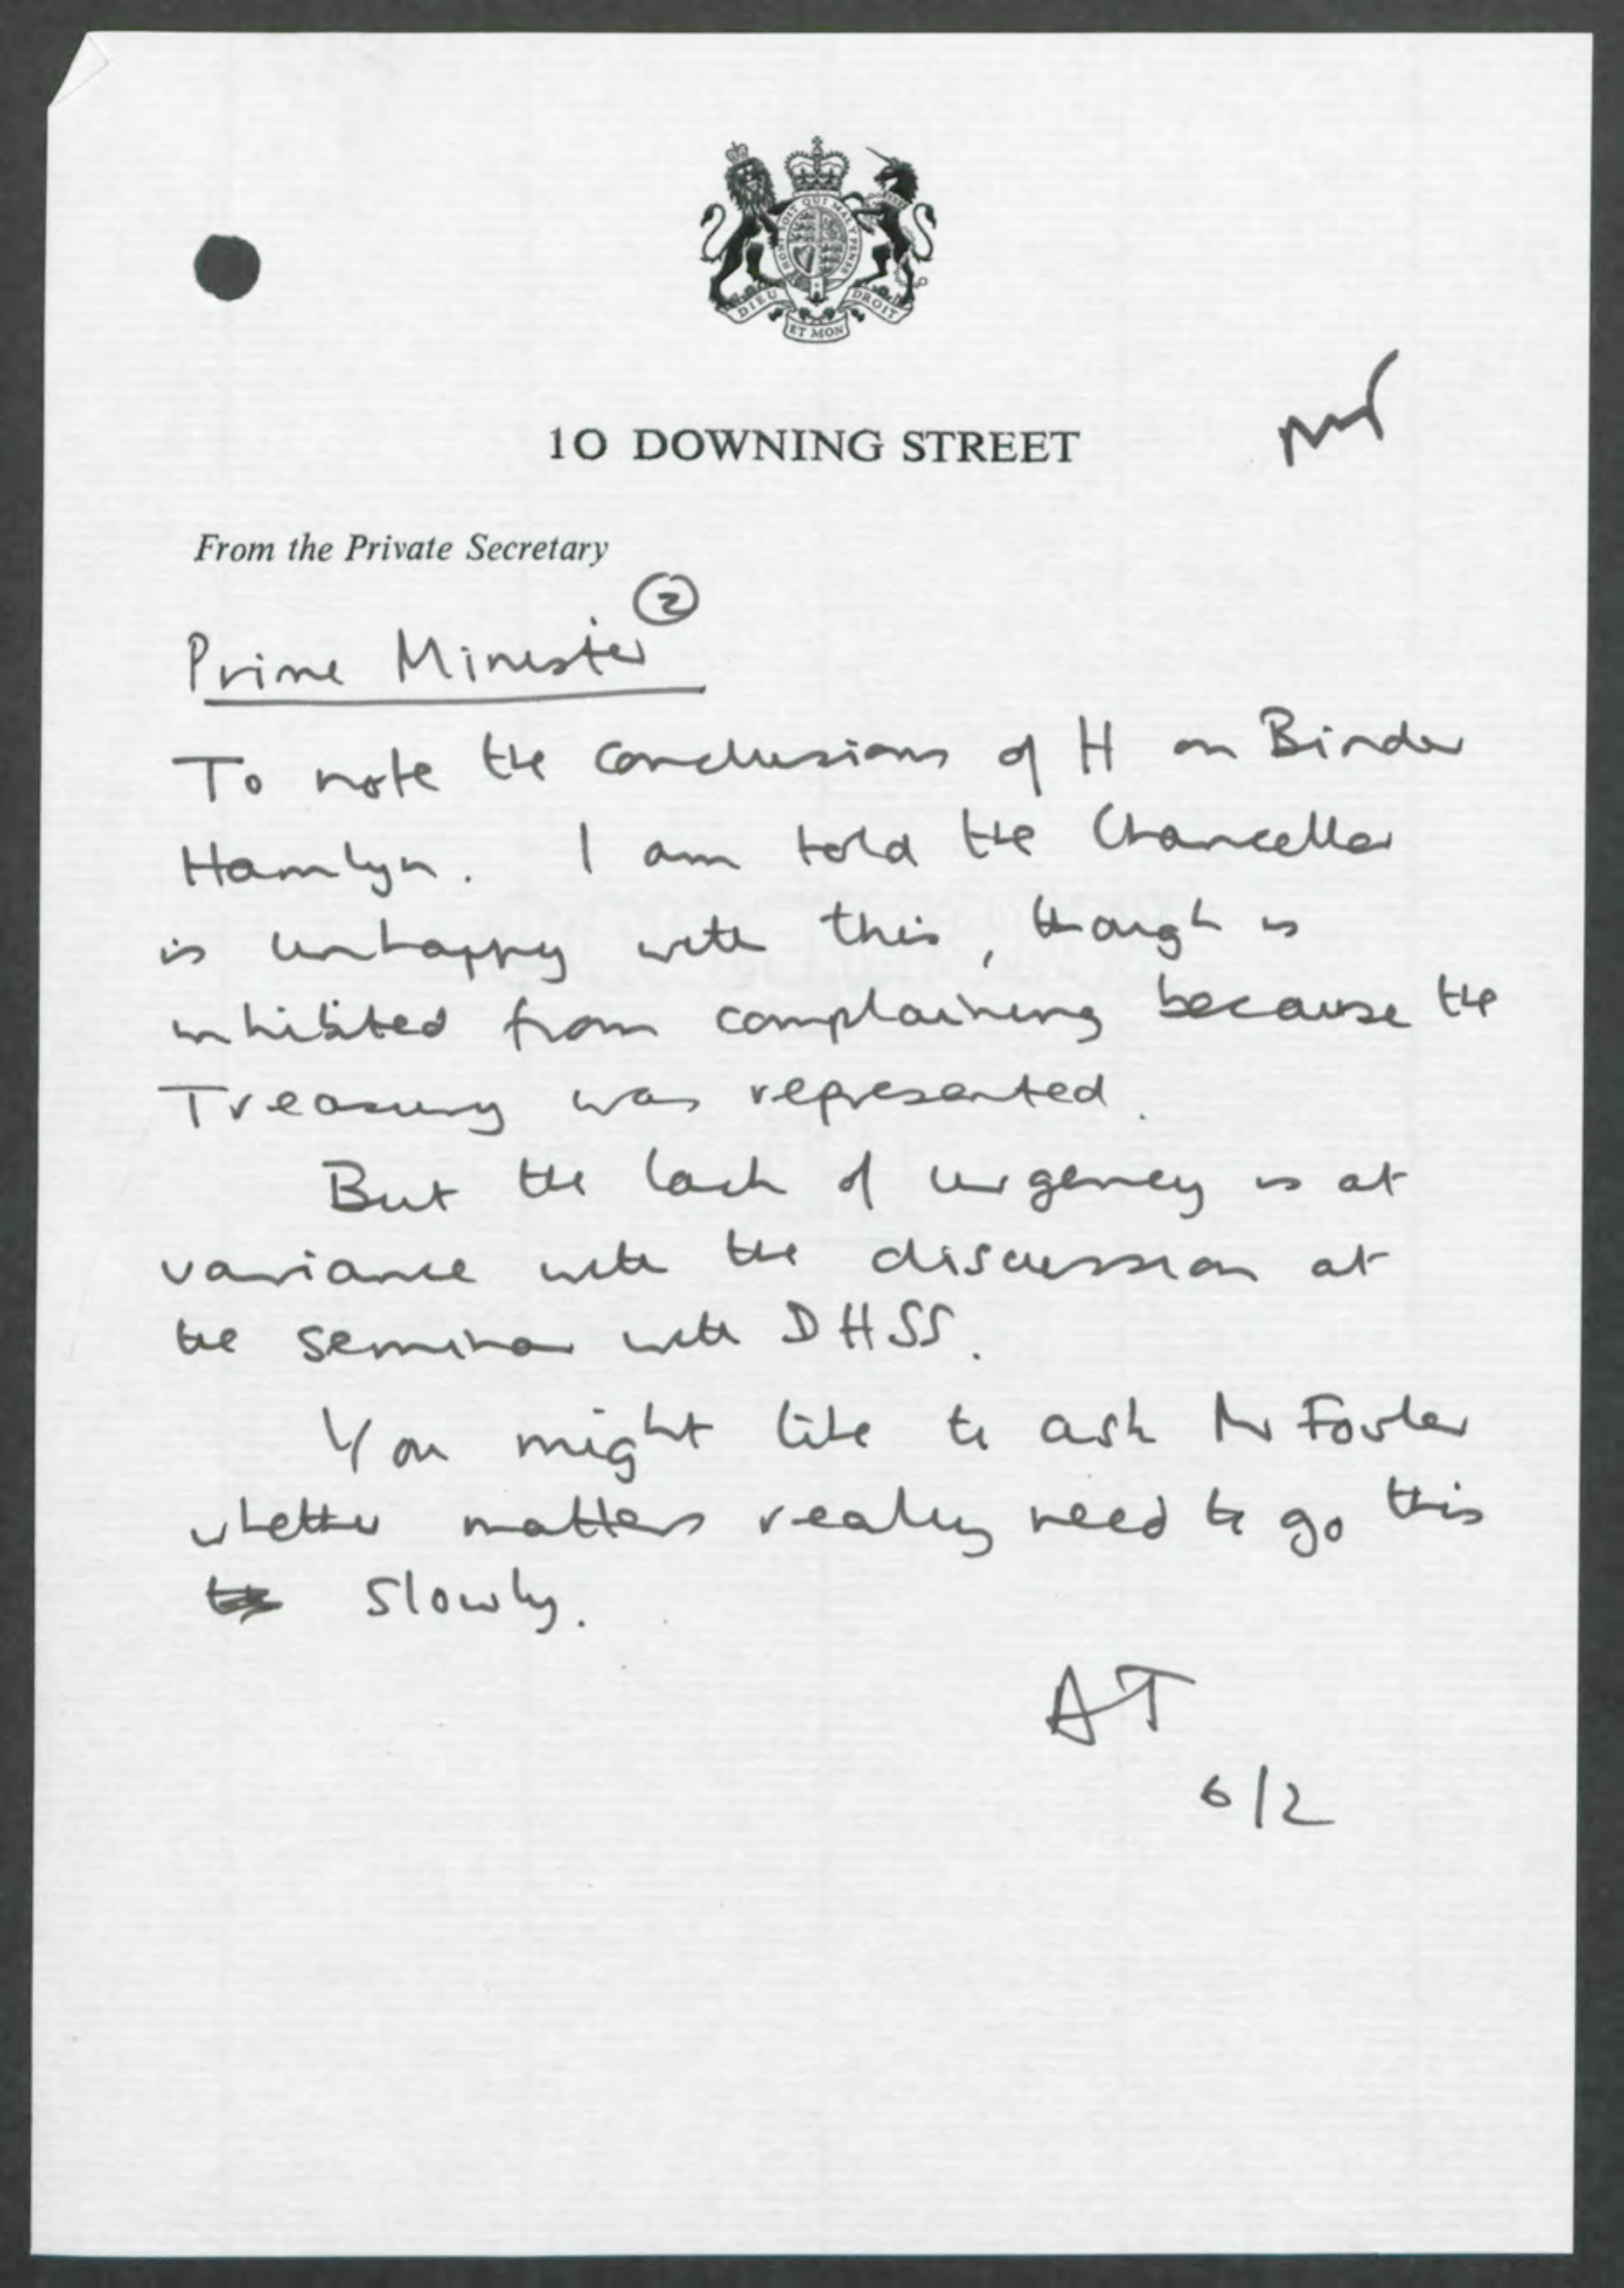 HONI SOIT QUI MAL Y PENSE
DIEU ET MON DROIT
10 DOWNING STREET
From the Private Secretary
2
Prime Minister
To note the conclusions of H on Binder
Hamlyn. I am told the Chancellor
is unhappy with this, though is
inhibited from complaining because the
Treasury was represented.
But the lack of urgency is at
variance with the discussion at
the seminar with DHSS.
You might like to ask Mr Fowler
whether matters really need to go this
slowly.
AT
6/2